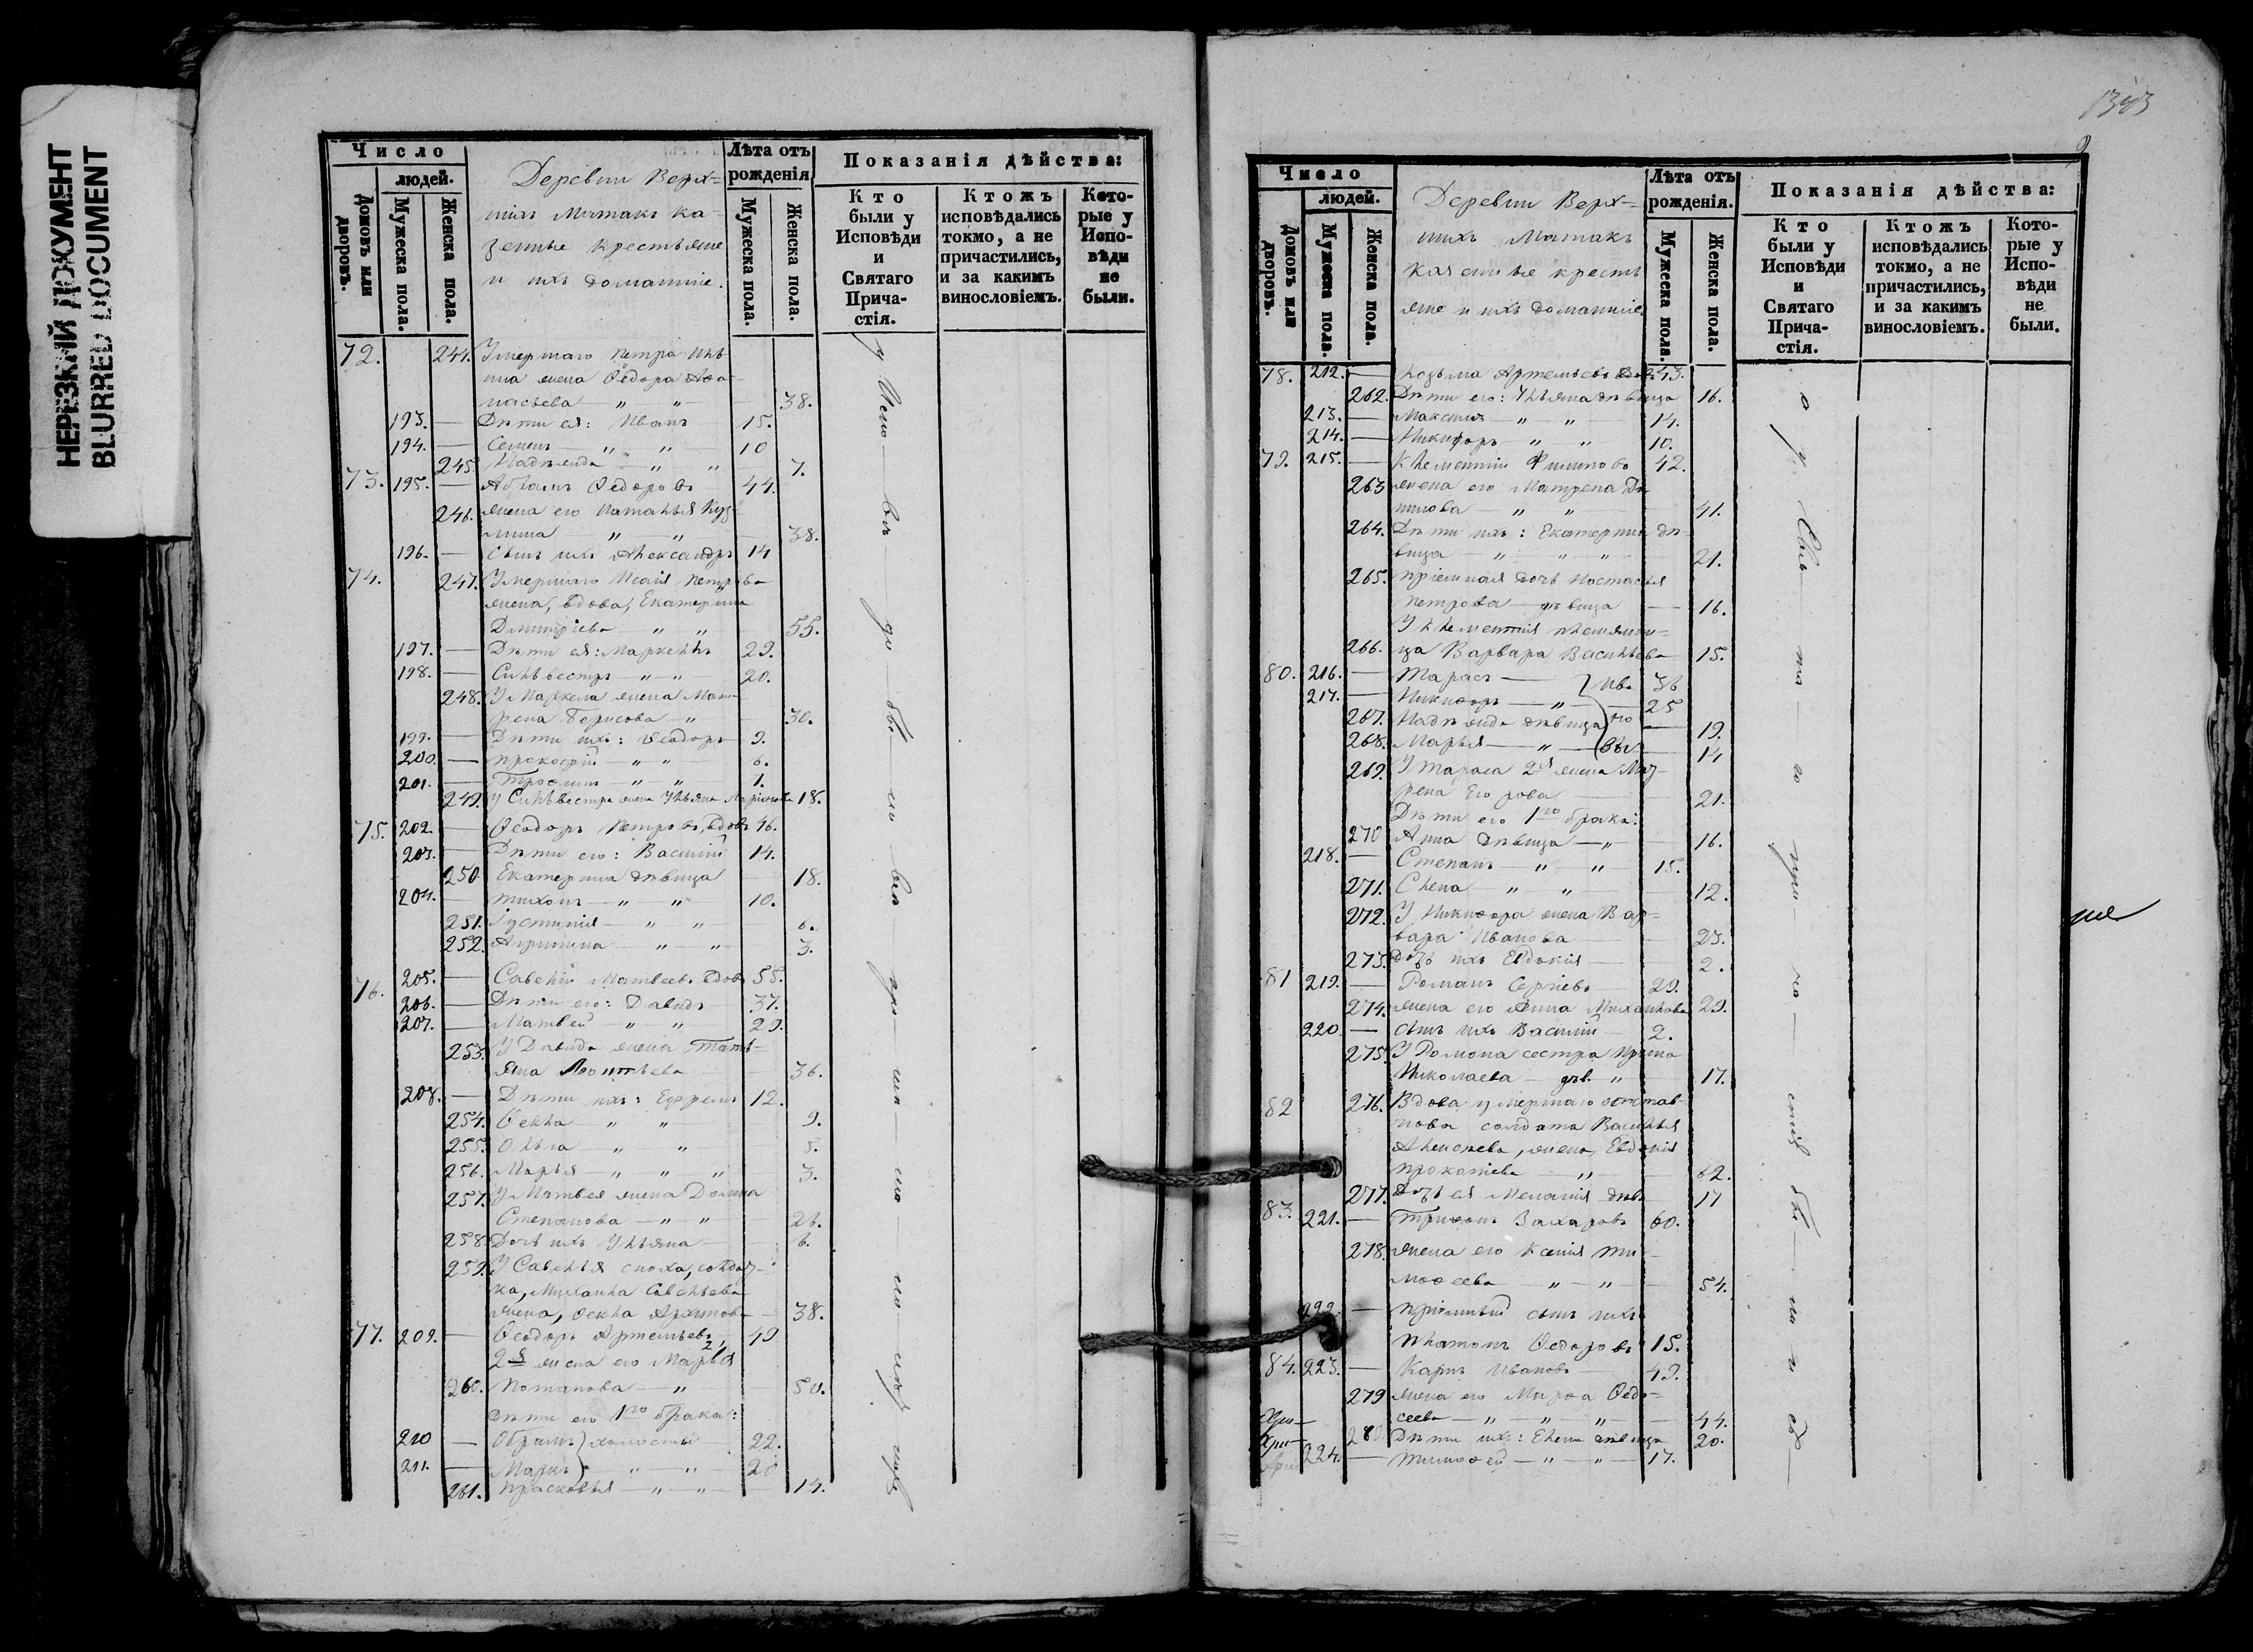 НЕРЕЗКИЙ ДОКУМЕНТ
BLURRED DOCUMENT
Число
людей.
Домовъ или дворовъ.
Мужеска пола.
Женска пола.
Деревни Верх=
нихъ Матакъ ка=
зенные крестьяне
и ихъ домашніе.
Лѣта отъ рожденія
Мужеска пола.
Женска пола.
Показанія дѣйства:
Кто были у Исповѣди и Святаго Прича-стія.
Ктожъ исповѣдались токмо, а не причастились, и за какимъ винословіемъ.
Кото-рые у Испо-вѣди не были.
72. 244. Умершаго Петра
жена Ѳедора Аѳа-
насьева — " — " 38.
193. — Дѣти ея: Иванъ 15.
194. — Семенъ — " — " 10
245. Надежда — " — " 7.
73. 195. — Абрамъ Ѳедоровъ 44.
246. жена его Наталья Куз-
мина — " — " 38.
196. — сынъ ихъ Александръ 14
74. 247. Умершаго Исаія Петрова
жена, вдова, Екатерина
Дмитріева — " — " 55.
197. — Дѣти ея: Маркеллъ 29.
198. — Сильвестръ — " — " 20.
248. У Маркела жена Мат-
рена Борисова — " 30.
199. — Дѣти ихъ: Ѳеодоръ 9.
200. — Прокофій — " — " 6.
201. — Трофимъ — " — " 1.
249. У Сильвестра жена Ульяна 18.
75. 202. — Ѳеодоръ Петровъ, вдовъ 46.
203. — Дѣти его: Василій 14.
250. Екатерина дѣвица 18.
204. — Тихонъ — " — " 10.
251. Іустинія — " — " 6.
252. Агрипина — " — " 3.
76. 205. — Савелій Матвеевъ вдовъ 55.
206. — Дѣти его: Давидъ 37.
207. — Матвей — " — " 29.
253. У Давида жена Тать-
яна Леонтьева 36.
208. — Дѣти ихъ: Ефремъ 12.
254. Ѳекла — " — " 9.
255. Ольга — " — " 5.
256. Марья — " — " — " 3.
257. У Матвея жена Домна
Степанова — " — " 26.
258. Дочь ихъ Ульяна 6.
259. У Савелья сноха, солдат-
ка, Михаила Савельева
жена, Ѳекла Архипова 38.
77. 209. — Ѳеодоръ Артемьевъ, 49
2я жена его Марья
260. Потапова — " 50.
Дѣти его 1го брака:
210 — Абрамъ } холосты 22.
211. — Маркъ } — " — " 20
261. Прасковья — " — " 14.
1343
Число
людей.
Домовъ или дворовъ.
Мужеска пола.
Женска пола.
Деревни Верх=
нихъ Матакъ
казенные кресть
яне и ихъ домашніе.
Лѣта отъ рожденія.
Мужеска пола.
Женска пола.
Показанія дѣйства:
Кто были у Исповѣди и Святаго Прича-стія.
Ктожъ исповѣдались токмо, а не причастились, и за какимъ винословіемъ.
Кото-рые у Испо-вѣди не были.
78. 212. — Козьма Артемьевъ 43.
262. Дѣти его: Ульяна дѣвица 16.
213. — Максимъ — " — " 14.
214. — Никифоръ — " — " 10.
79. 215. — Клементій Филиповъ 42.
263 жена его Матрена
— " — " 41.
264. Дѣти ихъ: Екатерина дѣ-
вица — " — " — " 21.
265. Пріемная дочь Настасья
Петрова — дѣвица 16.
У Клементія племянни=
266. ца Варвара Васильева 15.
80. 216. — Тарасъ — 36
217. — Никифоръ — " — 25
267. Надежда дѣвица 19.
268. Марья — " 14
269. У Тараса 2я жена Мат-
рена Егорова 21.
Дѣти его 1го брака:
270 Анна дѣвица — " 16.
218. — Степанъ — " — " 15.
271. Елена — " — " 12.
272. У Никифора жена Вар=
вара Иванова 23.
273. Дочь ихъ Евдокія 2.
81 219. — Романъ Сергіевъ 29.
274. жена его Анна Михайлова 29.
220. — сынъ ихъ Василій 2.
275. У Романа сестра Ирина
Николаева — дѣв. " 17.
82 276. Вдова, умершаго отстав-
солдата Василья
Алексеева, жена, Евдокія
— " 62.
277. Дочь ея Меланія дѣв. 17
83. 221. — Трифонъ Захаровъ 60.
278. жена его Ксенія Ти-
мофеева — " — " 54.
222. — Пріемный сынъ ихъ
Платонъ Ѳедоровъ 15.
84. 223. — Карпъ Ивановъ 49.
279 жена его Марѳа Ѳедо=
сеева — " — " — " 44.
280 Дѣти ихъ: Елена дѣвица 20.
224. — Тимофей — " — " 17.